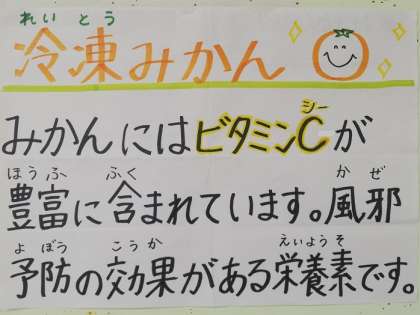 れいとう
冷凍みかん
シー
みかんにはビタミンCが
ほうふ ふく かぜ
豊富に含まれています。風邪
よぼう こうか えいようそ
予防の効果がある栄養素です。